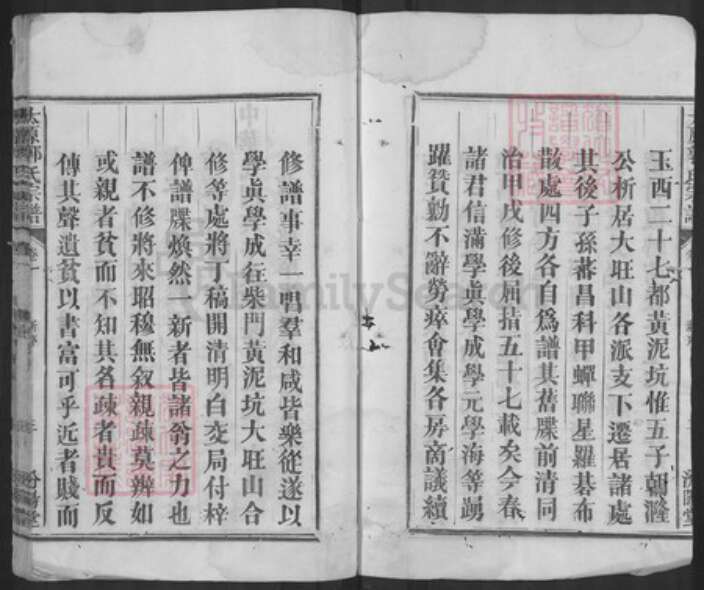 玉西二十七都黃泥坑惟五子朝滙
公析居大旺山各派支下遷居諸處
其後子孫蕃昌科甲蟬聯星羅碁布
散處四方各自為譜其舊牒前清同
治甲戌修後屈指五十七載矣今春
諸君信滿學眞學成學元學海等踴
躍贊勷不辭勞瘁會集各房商議續
修譜事幸一唱羣和咸皆樂從遂以
學眞學成在柴門黃泥坑大旺山合
修等處將丁稿開清明白交局付梓
俾譜牒煥然一新者皆諸翁之力也
譜不修將來昭穆無敘親疎莫辨如
或親者貧而不知其名疎者貴而反
傳其聲遺貧以書富可乎近者賤而
太原郭氏宗譜
卷一
汾陽堂
FamilySearch